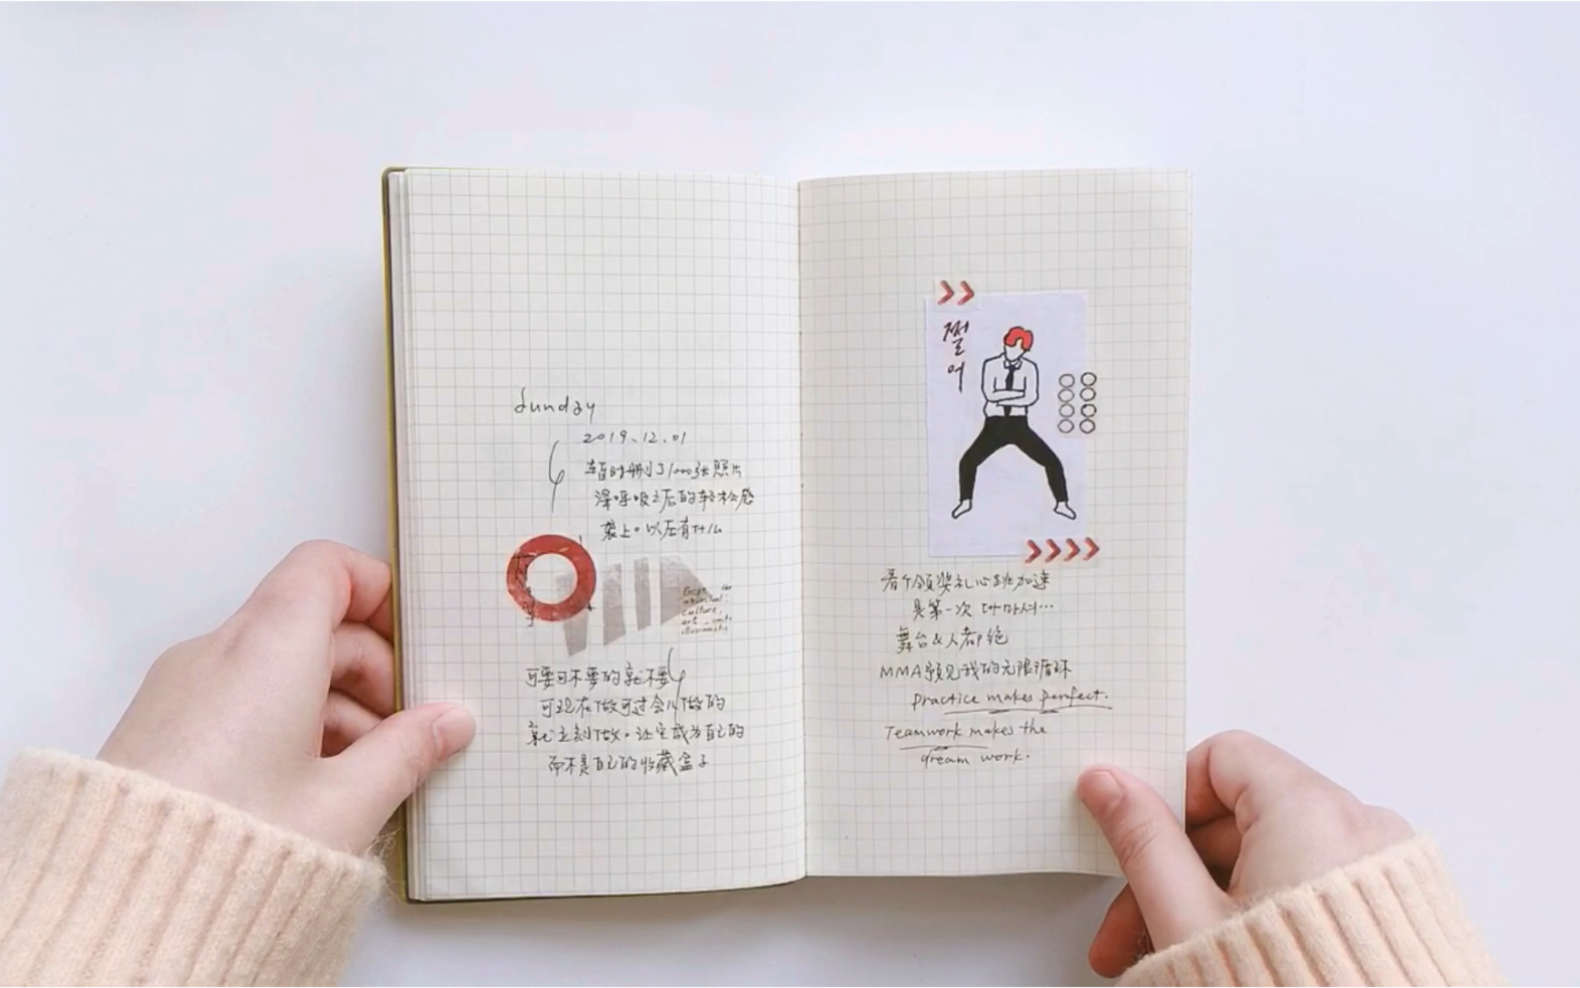 Sunday
2019.12.01
暂时删了1000张照片
深呼吸之后的轻松感
袭上。以后有什么
可要可不要的就不要
可现在做可过会儿做的
就立刻做。让它成为自己的
而不是自己的收藏盒子
쩔
어
看个颁奖礼心跳加速
是第一次 대마셔...
舞台&人都绝
MMA预见我的无限循环
Practice makes perfect.
Teamwork makes the
dream work.